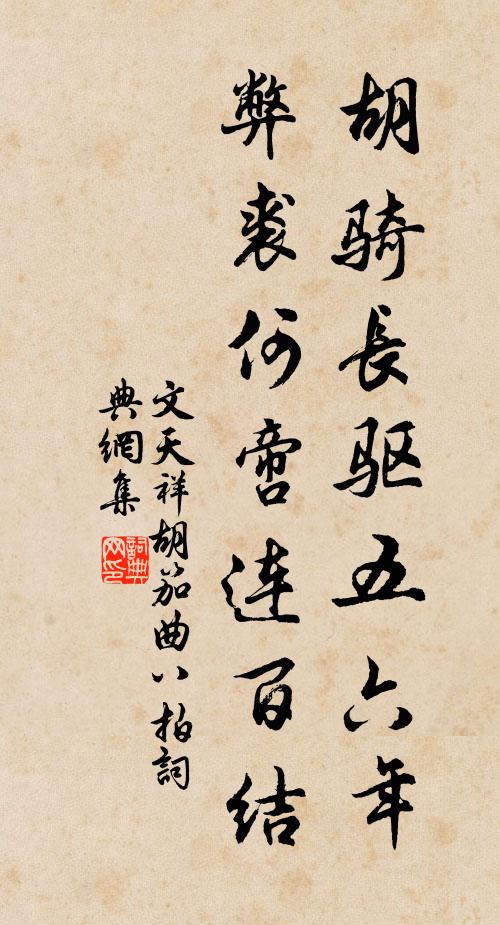 胡骑長驱五六年
弊裘何啻連百结
文天祥胡笳曲八拍詞
典網集
詞典网印